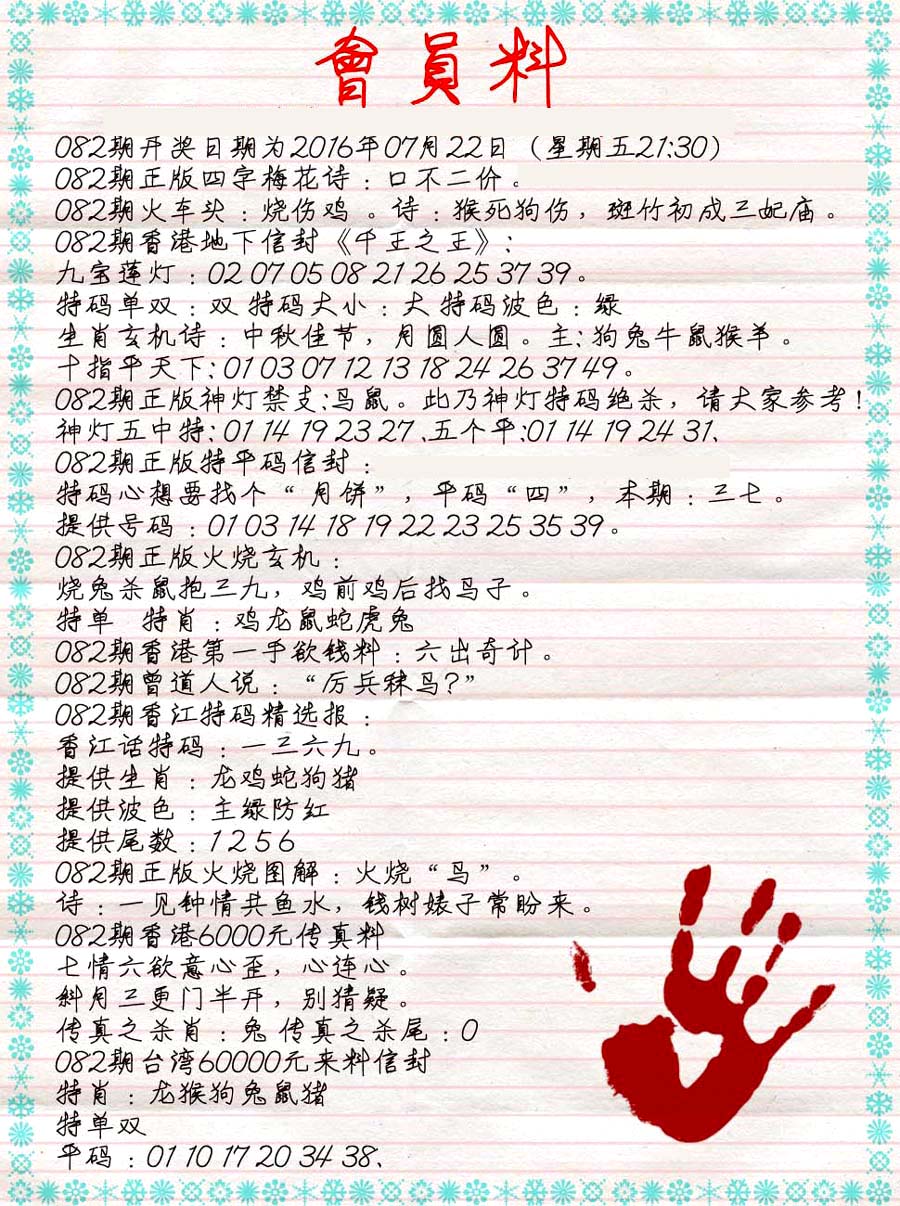 會員料
082期开奖日期为2016年07月22日（星期五21:30）
082期正版四字梅花诗：口不二价。
082期火车头：烧伤鸡。诗：猴死狗伤，斑竹初成三妃庙。
082期香港地下信封《千王之王》：
九宝莲灯：02 07 05 08 21 26 25 37 39。
特码单双：双 特码大小：大 特码波色：绿
生肖玄机诗：中秋佳节，月圆人圆。主：狗兔牛鼠猴羊。
十指平天下：01 03 07 12 13 18 24 26 37 49。
082期正版神灯禁支：马鼠。此乃神灯特码绝杀，请大家参考！
神灯五中特：01 14 19 23 27、五个平：01 14 19 24 31、
082期正版特平码信封：
特码心想要找个“月饼”，平码“四”，本期：三七。
提供号码：01 03 14 18 19 22 23 25 35 39。
082期正版火烧玄机：
烧兔杀鼠抱三九，鸡前鸡后找马子。
特单 特肖：鸡龙鼠蛇虎兔
082期香港第一手欲钱料：六出奇计。
082期曾道人说：“厉兵秣马？”
082期香江特码精选报：
香江话特码：一三六九。
提供生肖：龙鸡蛇狗猪
提供波色：主绿防红
提供尾数：1 2 5 6
082期正版火烧图解：火烧“马”。
诗：一见钟情共鱼水，钱树婊子常盼来。
082期香港6000元传真料
七情六欲意心歪，心连心。
斜月三更门半开，别猜疑。
传真之杀肖：兔 传真之杀尾：0
082期台湾60000元来料信封
特肖：龙猴狗兔鼠猪
特单双
平码：01 10 17 20 34 38、